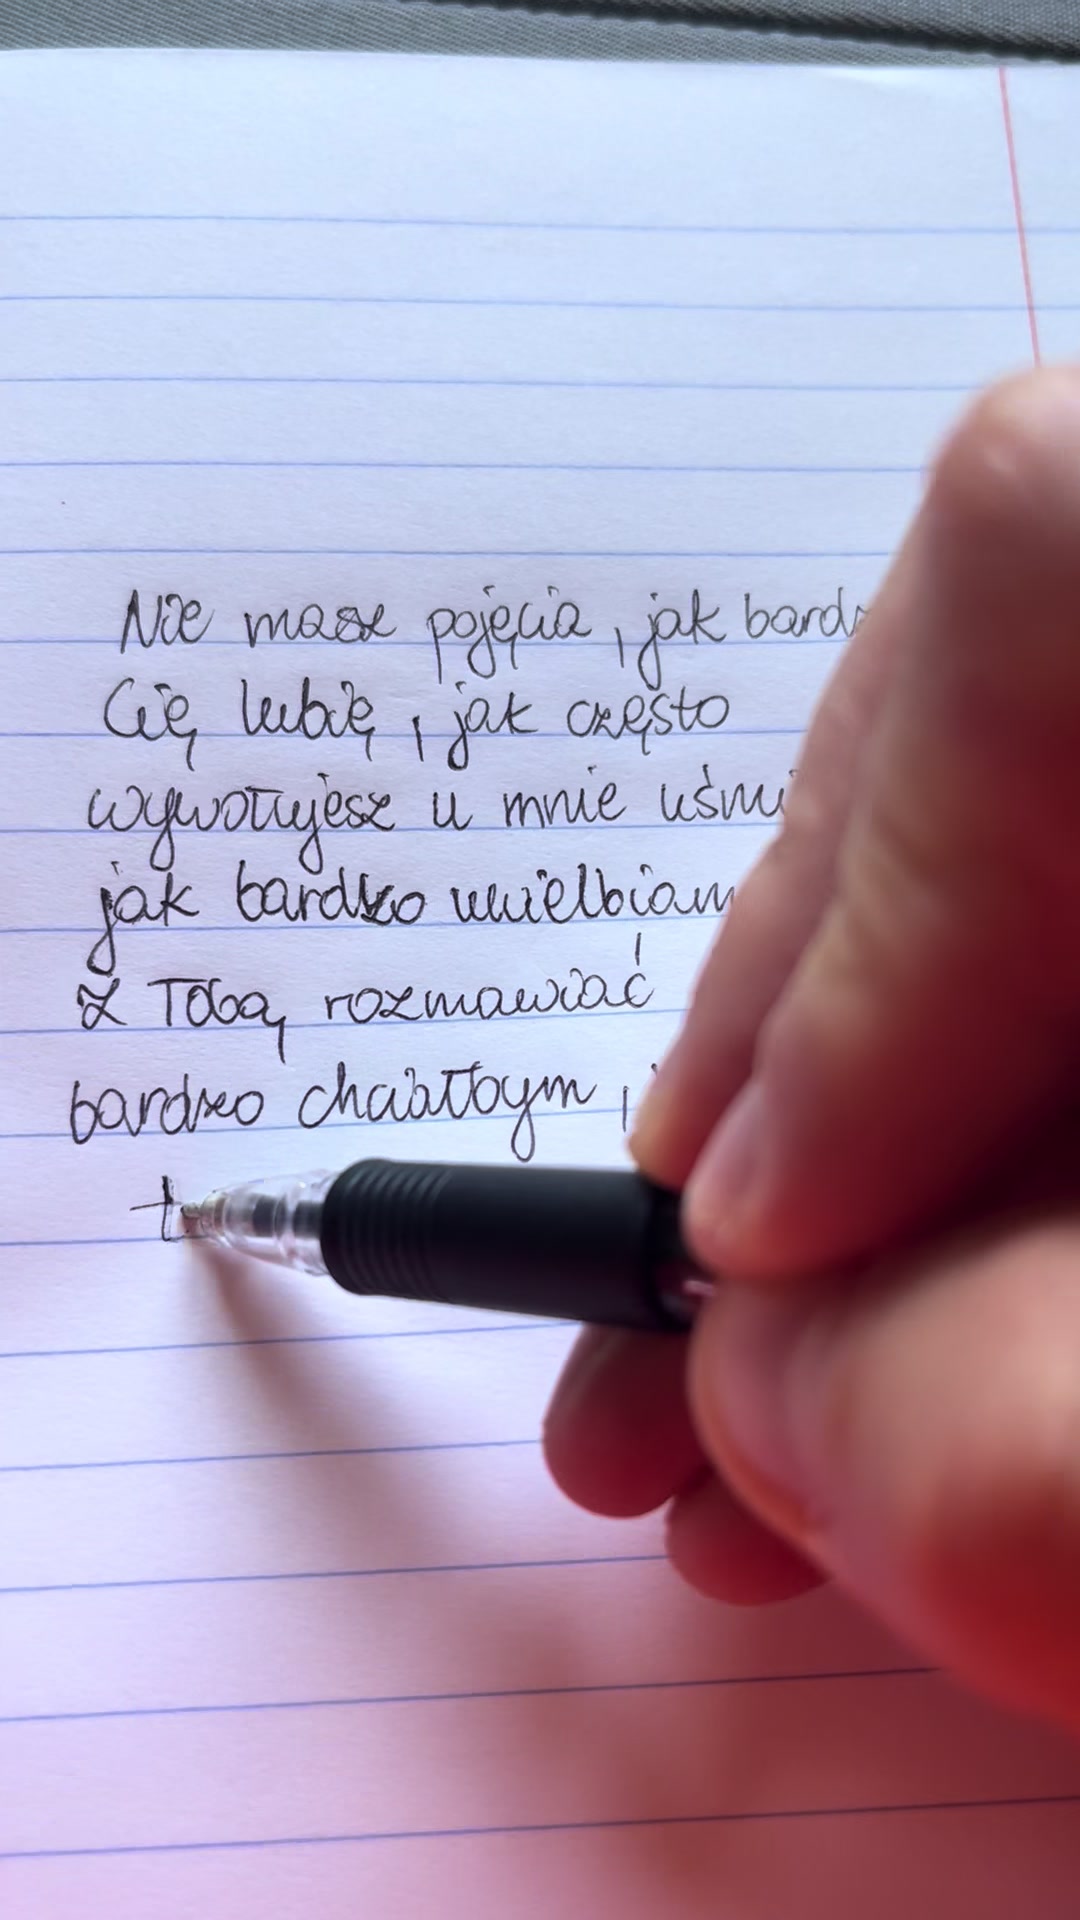 Nie masz pojęcia, jak
Cię lubię, jak często
wywołujesz u mnie
jak bardzo uwielbiam
z Tobą rozmawiać
bardzo chciałbym,
t